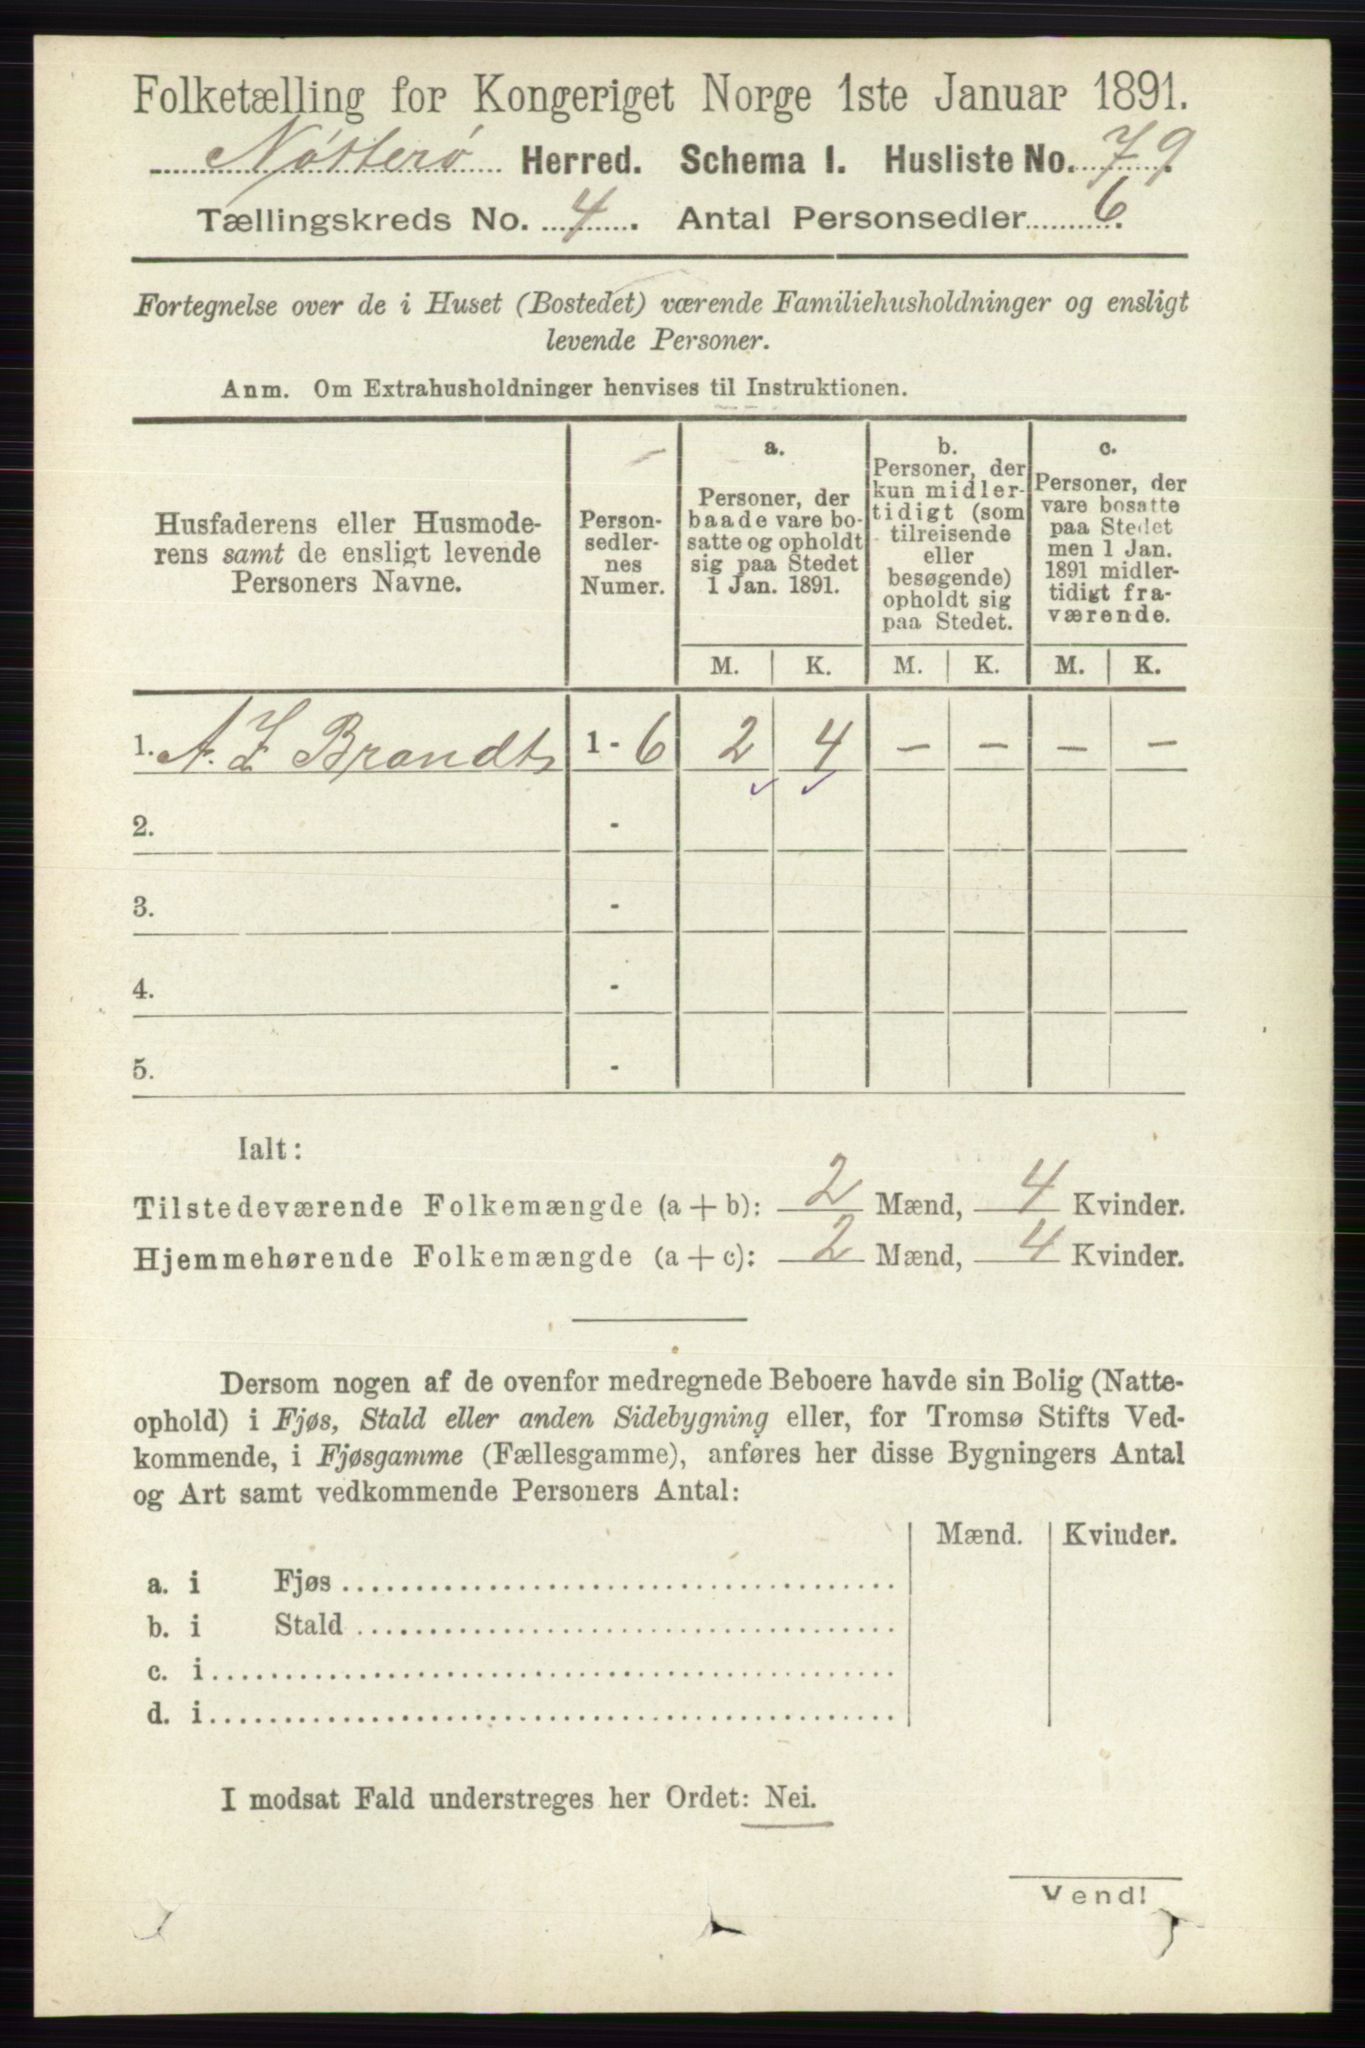 Folketælling for Kongeriget Norge 1ste Januar 1891.
Nøtterø Herred. Schema I. Husliste No. 79
Tællingskreds No. 4. Antal Personsedler 6.
Fortegnelse over de i Huset (Bostedet) værende Familiehusholdninger og ensligt
levende Personer.
Anm. Om Extrahusholdninger henvises til Instruktionen.
Husfaderens eller Husmode-
rens samt de ensligt levende
Personers Navne.
Person-
sedler-
nes
Numer.
a.
Personer, der
baade vare bo-
satte og opholdt
sig paa Stedet
1 Jan. 1891.
b.
Personer, der
kun midler-
tidigt (som
tilreisende
eller
besøgende)
opholdt sig
paa Stedet.
c.
Personer, der
vare bosatte
paa Stedet
men 1 Jan.
1891 midler-
tidigt fra-
værende.
M. K. M. K. M. K.
1. A. Z. Brandt 1 - 6 2 4 - - - -
2. -
3. -
4. -
5. -
Ialt:
Tilstedeværende Folkemængde (a + b): 2 Mænd, 4 Kvinder.
Hjemmehørende Folkemængde (a + c): 2 Mænd, 4 Kvinder.
Dersom nogen af de ovenfor medregnede Beboere havde sin Bolig (Natte-
ophold) i Fjøs, Stald eller anden Sidebygning eller, for Tromsø Stifts Ved-
kommende, i Fjøsgamme (Fællesgamme), anføres her disse Bygningers Antal
og Art samt vedkommende Personers Antal:
Mænd. Kvinder.
a. i Fjøs
b. i Stald
c. i
d. i
I modsat Fald understreges her Ordet: Nei.
Vend!